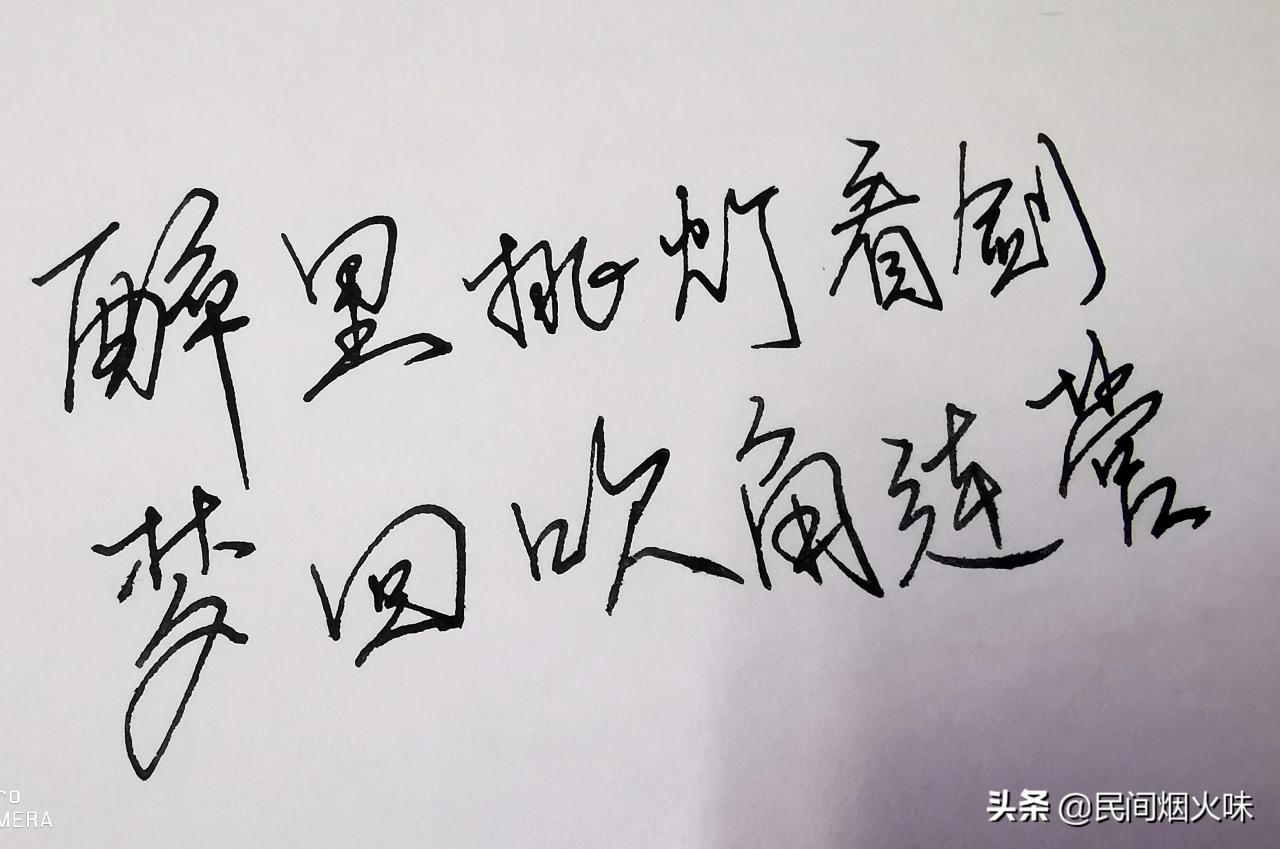 醉里挑灯看剑
梦回吹角连营
头条 @民间烟火味